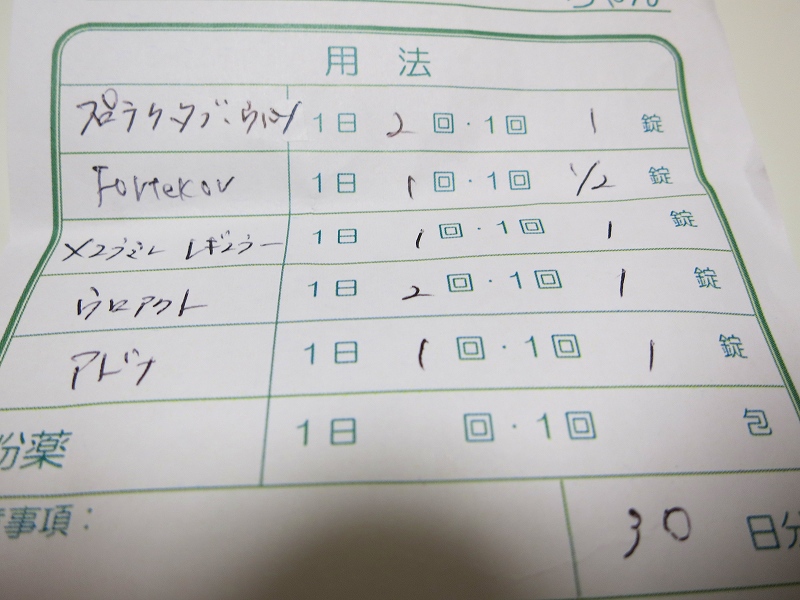 用 法
プロラクタブ・ウロソ 1日 2 回・1回 1 錠
Fortekor 1日 1 回・1回 1/2 錠
メニぶミン レギュラー 1日 1 回・1回 1 錠
ウロアクト 1日 2 回・1回 1 錠
アドナ 1日 1 回・1回 1 錠
粉薬 1日 回・1回 包
事項：
30 日分